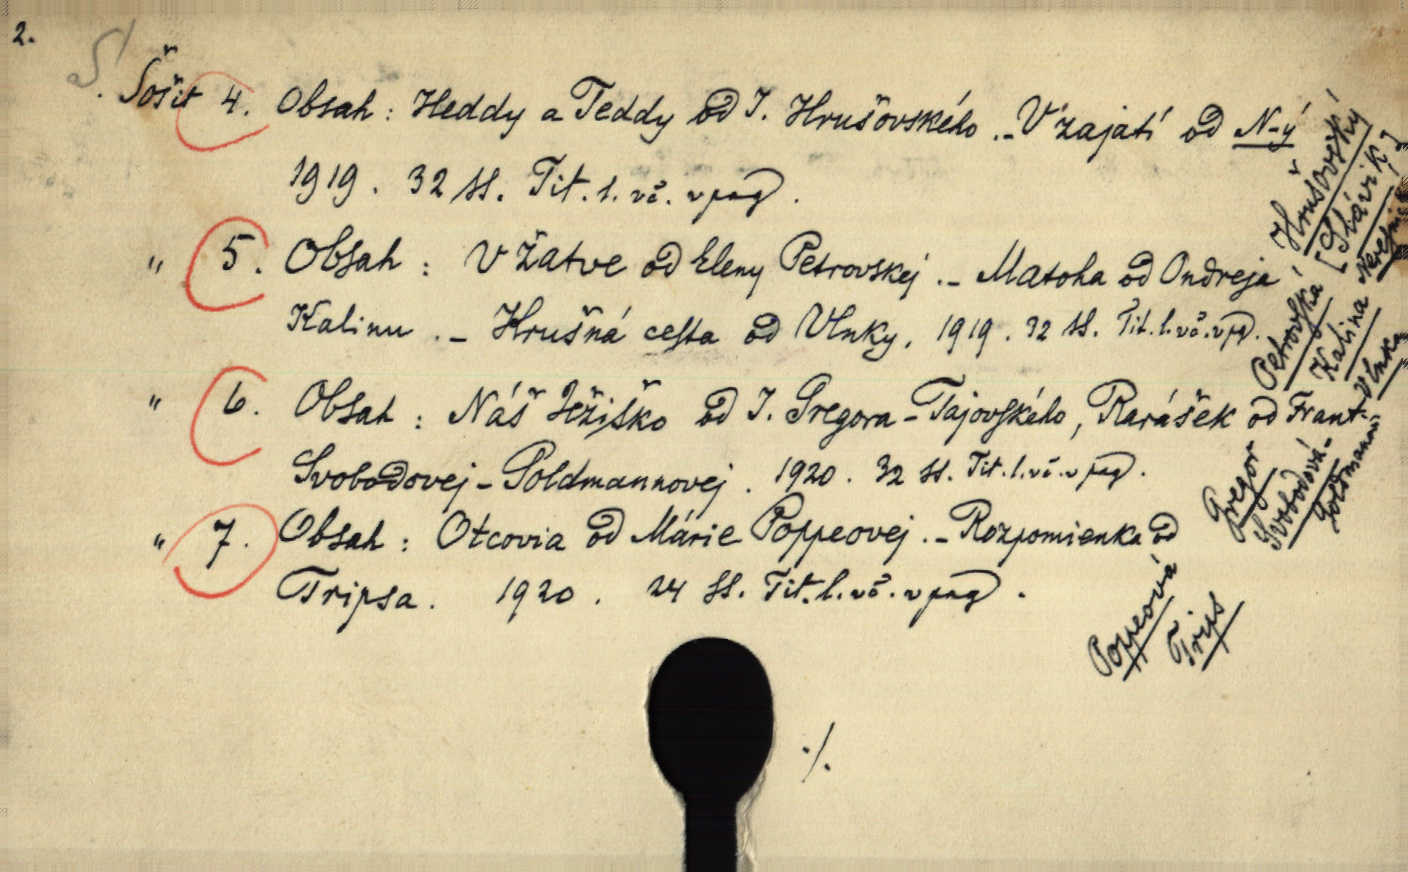 2.
Sošit 4. Obsah : Heddy a Teddy od I. Hrušovského .- V zajatí od N-ý
1919. 32 ss. Tit. l. vč. v pag.
" 5. Obsah : V žatve od Eleny Petrovskej .- Matoha od Ondreja
Kalinu .- Hrušná cesta od Vlnky, 1919. 32 ss. Tit. l. vč. v pg.
" 6. Obsah : Náš Ježiško od I. Gregora-Tajovského, Rarášek od Frant.
Svobodovej-Goldmannovej. 1920. 32 ss. Tit. l. vč. v pag.
" 7. Obsah : Otcovia od Márie Poppeovej .- Rozpomienka od
Tripsa. 1920. 24 ss. Tit. l. vč. v pag.
Hrušovský
[Slávik]
Petrovská
Kalina
Vlnka
Gregor
Svobodová-
Goldmannová
Poppeová
Trips
./.